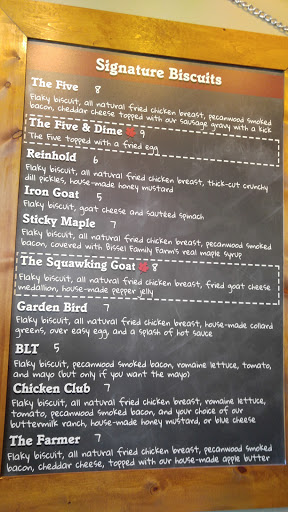 Signature Biscuits
The Five 8
Flaky biscuit, all natural fried chicken breast, pecanwood smoked
bacon, cheddar cheese topped with our sausage gravy with a kick
The Five & Dime 9
The Five topped with a fried egg
Reinhold 6
Flaky biscuit, all natural fried chicken breast, thick-cut crunchy
dill pickles, house-made honey mustard
Iron Goat 5
Flaky biscuit, goat cheese and sauteed spinach
Sticky Maple 7
Flaky biscuit, all natural fried chicken breast, pecanwood smoked
bacon, covered with Bissel Family Farm's real maple syrup
The Squawking Goat 8
Flaky biscuit, all natural fried chicken breast, fried goat cheese
medallion, house-made pepper jelly
Garden Bird 7
Flaky biscuit, all natural fried chicken breast, house-made collard
greens, over easy egg, and a splash of hot sauce
BLT 5
Flaky biscuit, pecanwood smoked bacon, romaine lettuce, tomato,
and mayo (but only if you want the mayo)
Chicken Club 7
Flaky biscuit, all natural fried chicken breast, romaine lettuce,
tomato, pecanwood smoked bacon, and your choice of our
buttermilk ranch, house-made honey mustard, or blue cheese
The Farmer 7
Flaky biscuit, all natural fried chicken breast, pecanwood smoked
bacon, cheddar cheese, topped with our house-made apple butter